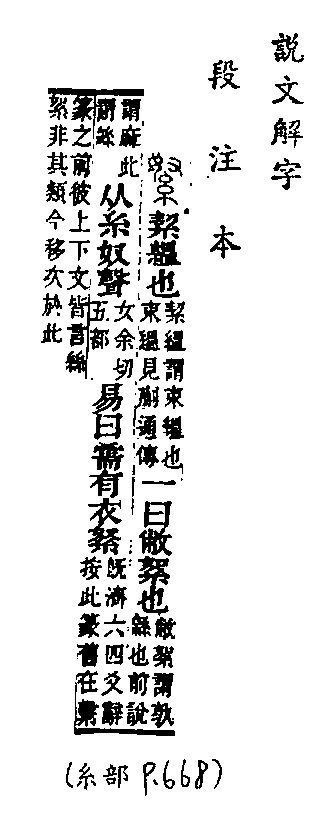 説文解字
段注本
絜縕也 絜縕謂束縕也束縕見蒯通傳 一曰敝絮也 敝絮謂孰緜也前說
謂麻此謂絲 从糸奴聲 女余切五部 易曰需有衣䋈 既濟六四爻辭按此篆舊在繫
篆之前彼上下文皆言絲絮非其類今移次於此
(糸部 P.668)